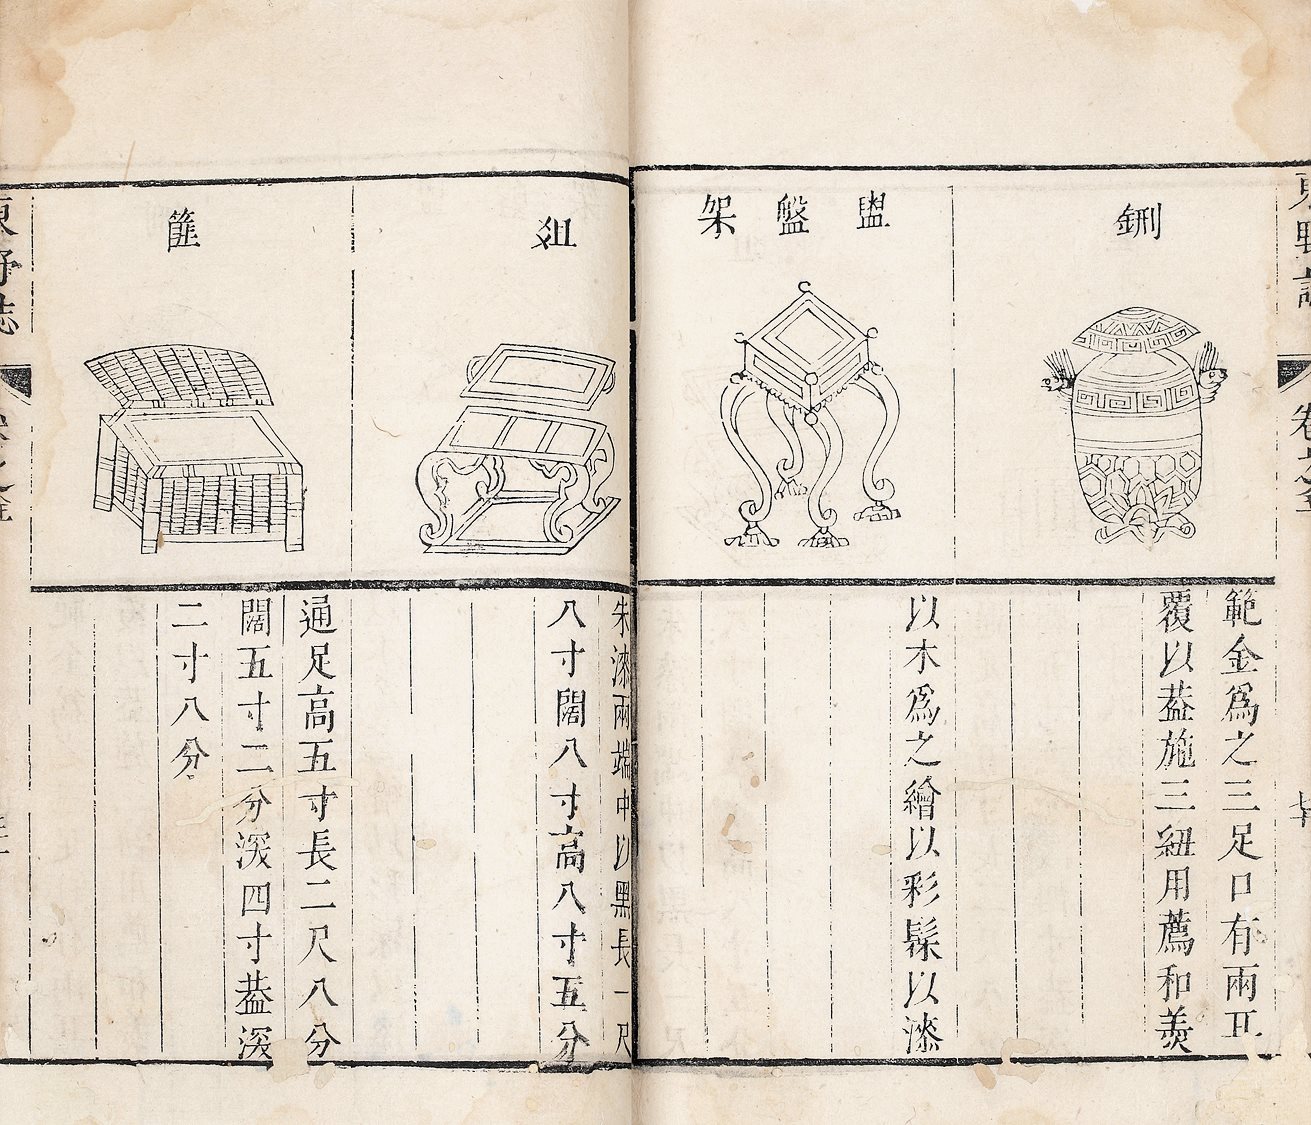 鉶
範金爲之三足口有兩耳
覆以葢施三紐用薦和羮
盥盤架
以木爲之繪以彩髹以漆
俎
朱漆兩端中以黑長一尺
八寸闊八寸高八寸五分
篚
通足高五寸長二尺八分
闊五寸二分深四寸葢深
二寸八分
東野誌
卷之